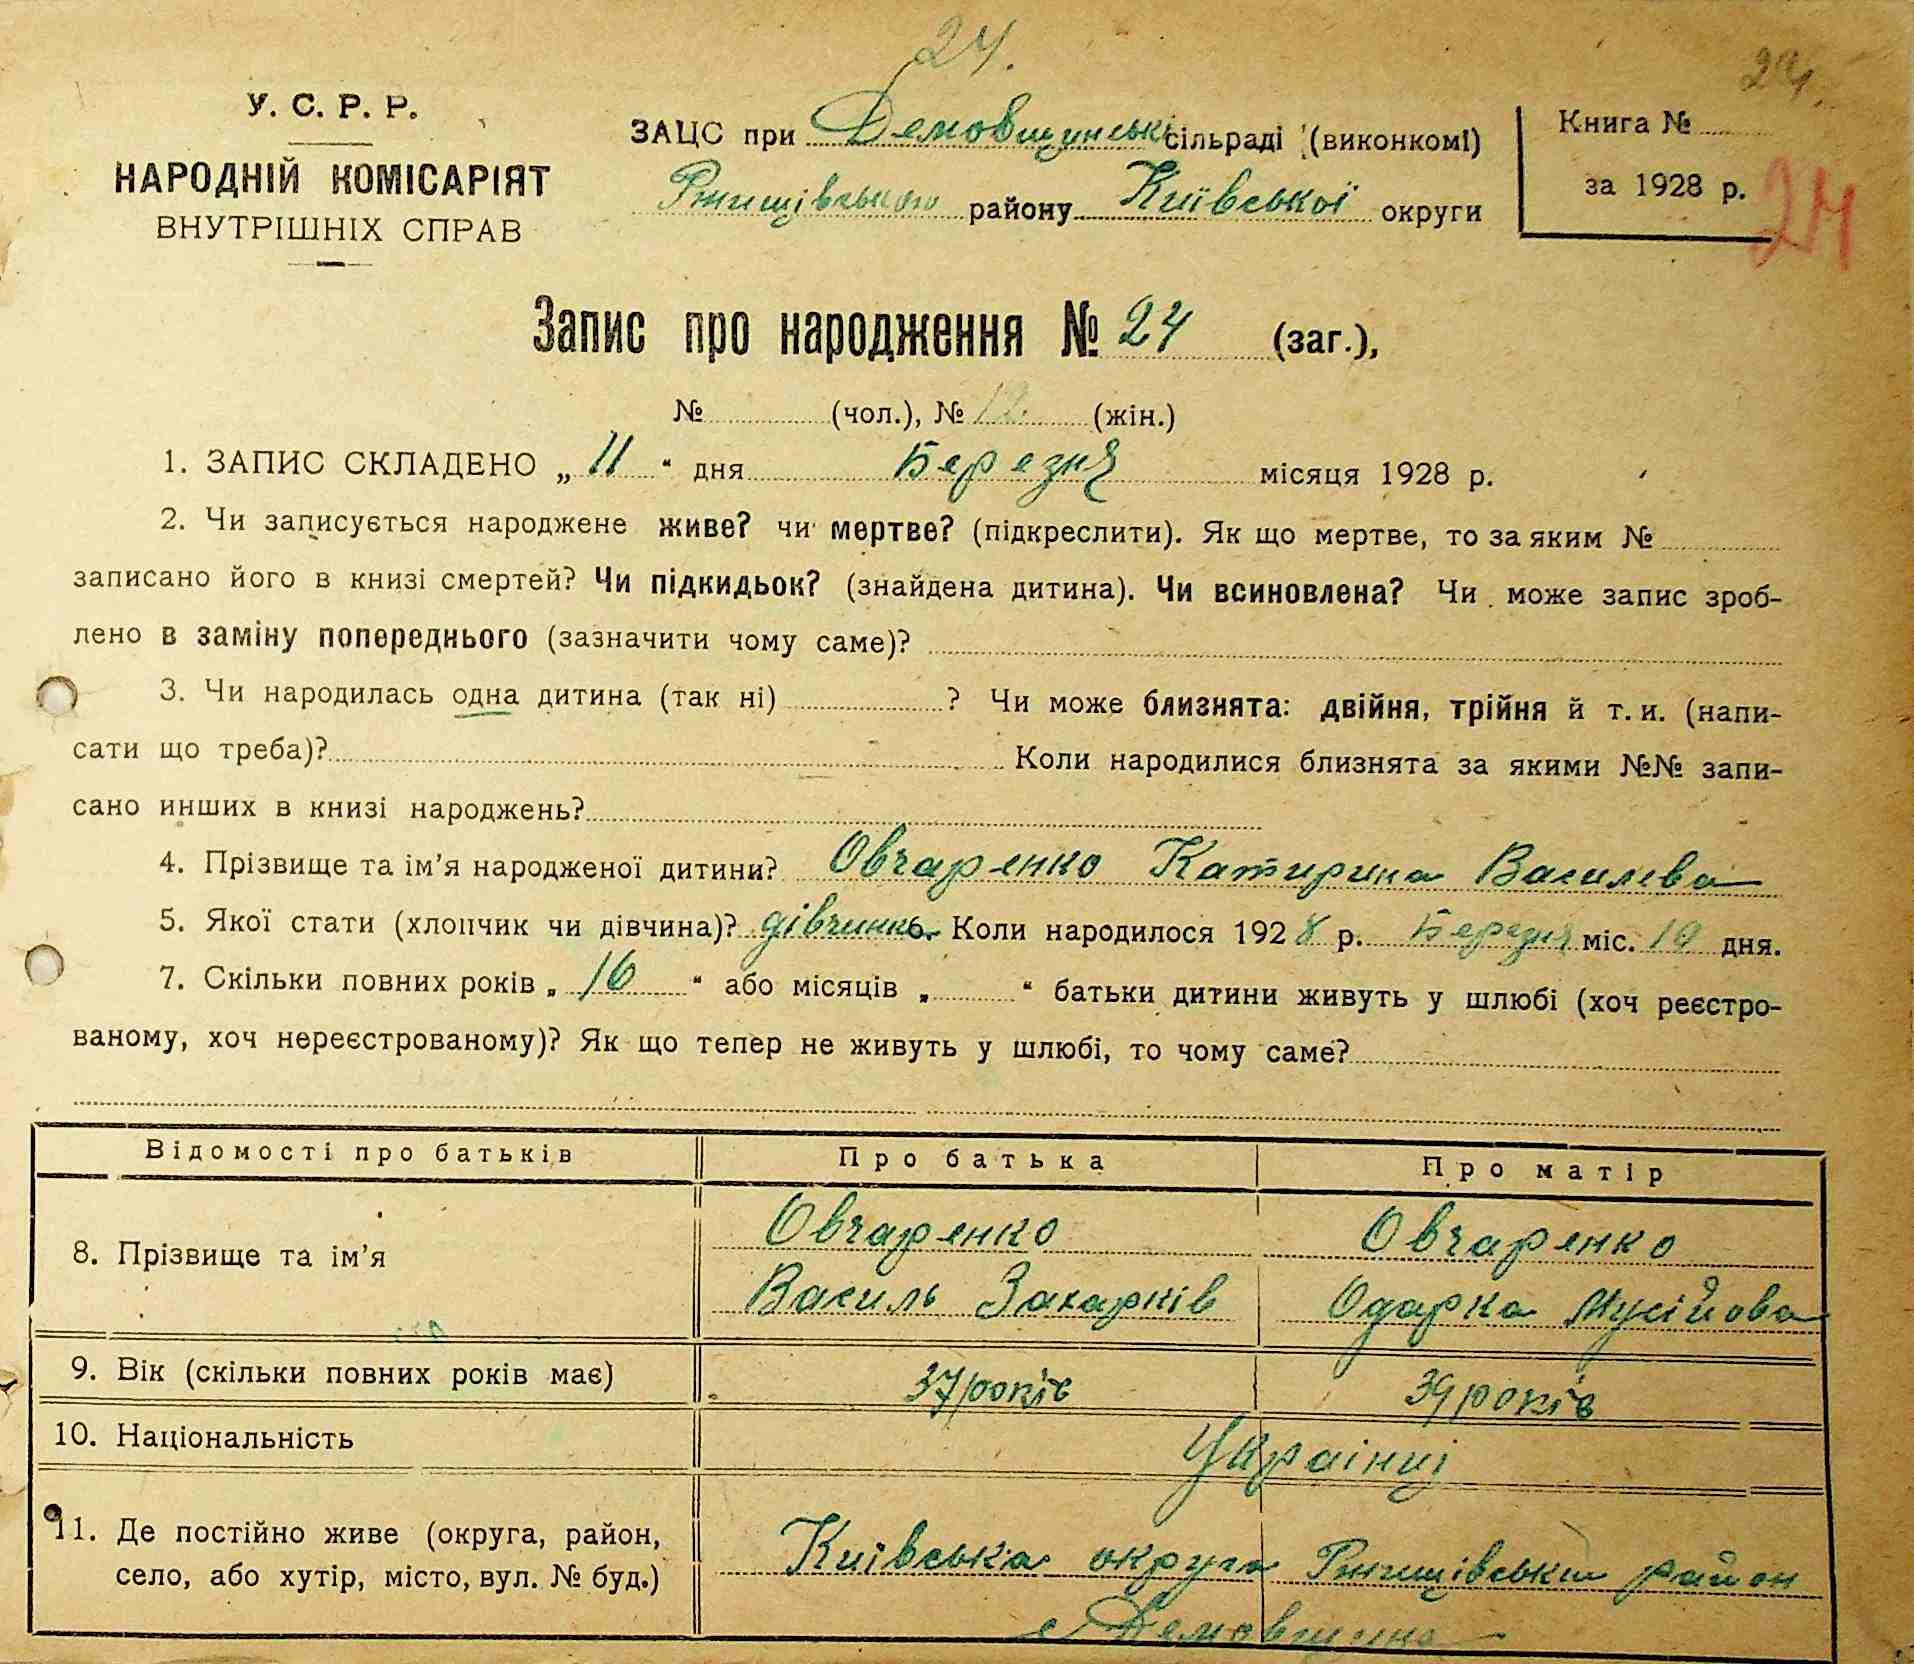 24.
24.
У. С. Р. Р.
НАРОДНІЙ КОМІСАРІЯТ
ВНУТРІШНІХ СПРАВ
ЗАЦС при Демовщинській сільраді (виконкомі)
Ржищівського району Київської округи
Книга №
за 1928 р.
24
Запис про народження № 24 (заг.),
№ (чол.), № 12 (жін.)
1. ЗАПИС СКЛАДЕНО „ 11 “ дня Березня місяця 1928 р.
2. Чи записується народжене живе? чи мертве? (підкреслити). Як що мертве, то за яким №
записано його в книзі смертей? Чи підкидьок? (знайдена дитина). Чи всиновлена? Чи може запис зроб-
лено в заміну попереднього (зазначити чому саме)?
3. Чи народилась одна дитина (так ні) ? Чи може близнята: двійня, трійня й т. и. (напи-
сати що треба)? Коли народилися близнята за якими №№ запи-
сано инших в книзі народжень?
4. Прізвище та ім’я народженої дитини? Овчаренко Катирина Василева
5. Якої стати (хлопчик чи дівчина)? дівчинка Коли народилося 1928 р. Березня міс. 10 дня.
7. Скільки повних років „ 16 “ або місяців „ “ батьки дитини живуть у шлюбі (хоч реєстро-
ваному, хоч нереєстрованому)? Як що тепер не живуть у шлюбі, то чому саме?
Відомості про батьків Про батька Про матір
8. Прізвище та ім’я
Овчаренко Овчаренко
Василь Захарків Одарка Мусійова
9. Вік (скільки повних років має) 37 років 39 років
10. Національність Украінці
11. Де постійно живе (округа, район,
село, або хутір, місто, вул. № буд.)
Київська округа Ржищівський район
с Демовщина